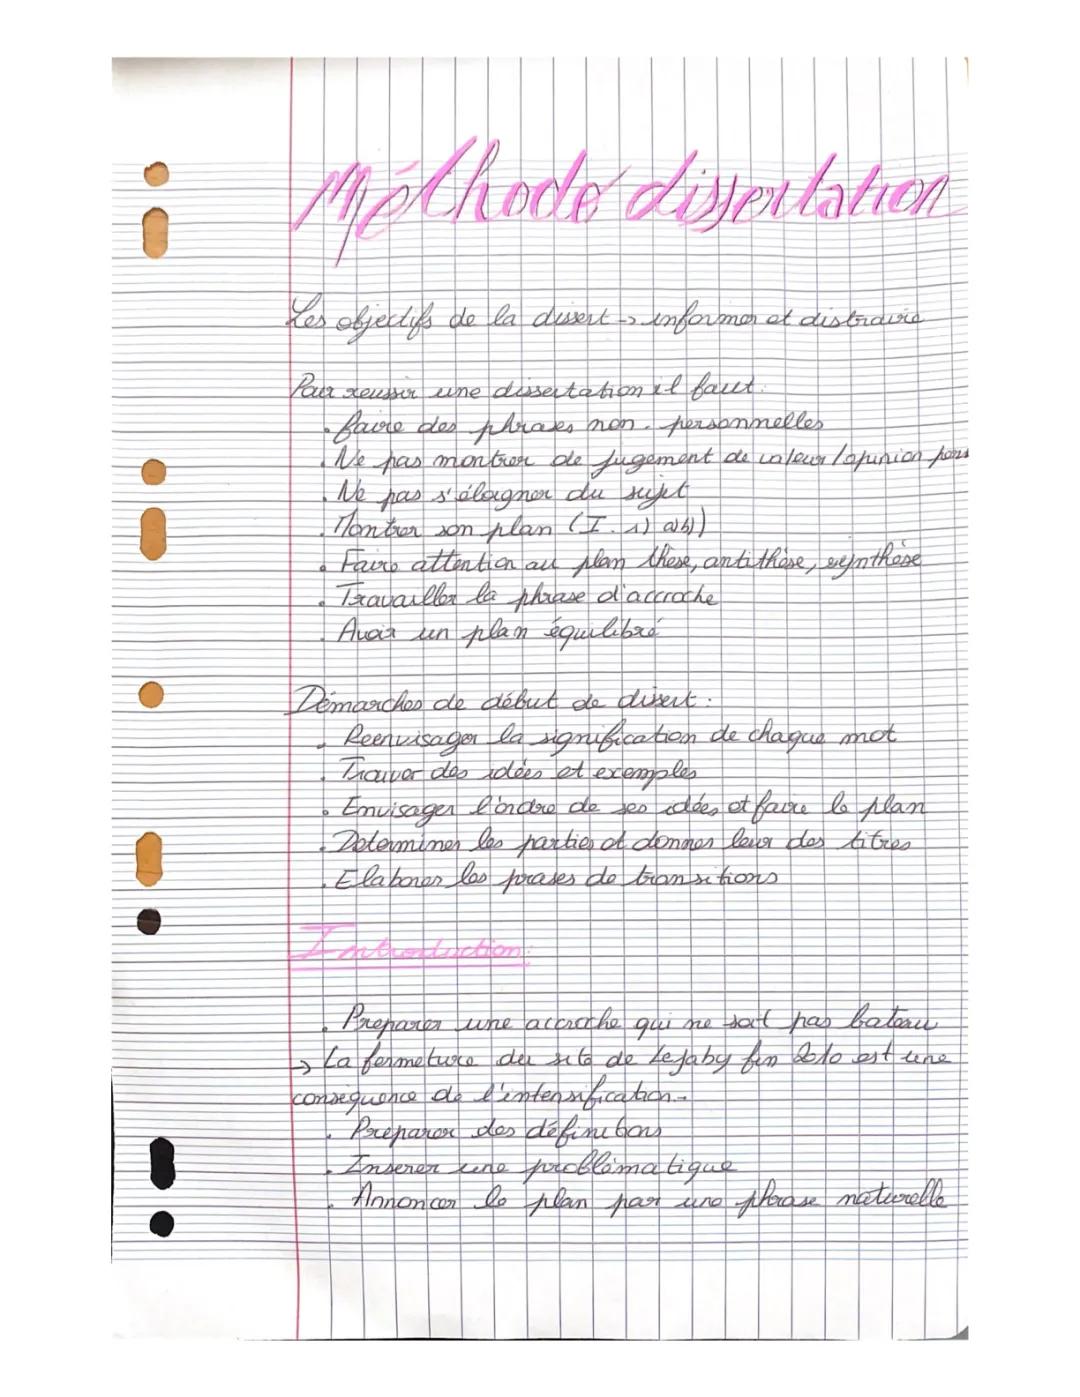 Méthode dissertation
Les objectifs de la dissert → informer et distraire
Pour reussir une dissertation il faut :
. faire des phrases non-personnelles
. Ne pas montrer de jugement de valeur / opinion pers
. Ne pas s'éloigner du sujet
. Montrer son plan (I. 1) a)b))
. Faire attention au plan thèse, antithèse, synthèse
. Travailler la phrase d'accroche
. Avoir un plan équilibré
Démarches de début de disert :
. Reenvisager la signification de chaque mot
. Trouver des idées et exemples
. Envisager l'ordre de ses idées et faire le plan
. Determiner les parties et donner leur des titres
. Elaborer les prases de transitions
Introduction :
. Preparer une accroche qui ne soit pas bateau
→ La fermeture du site de Lejaby fin 2010 est une
consequence de l'intensification..
. Préparer des définitions
. Inserer une problématique
. Annoncer le plan par une phrase naturelle